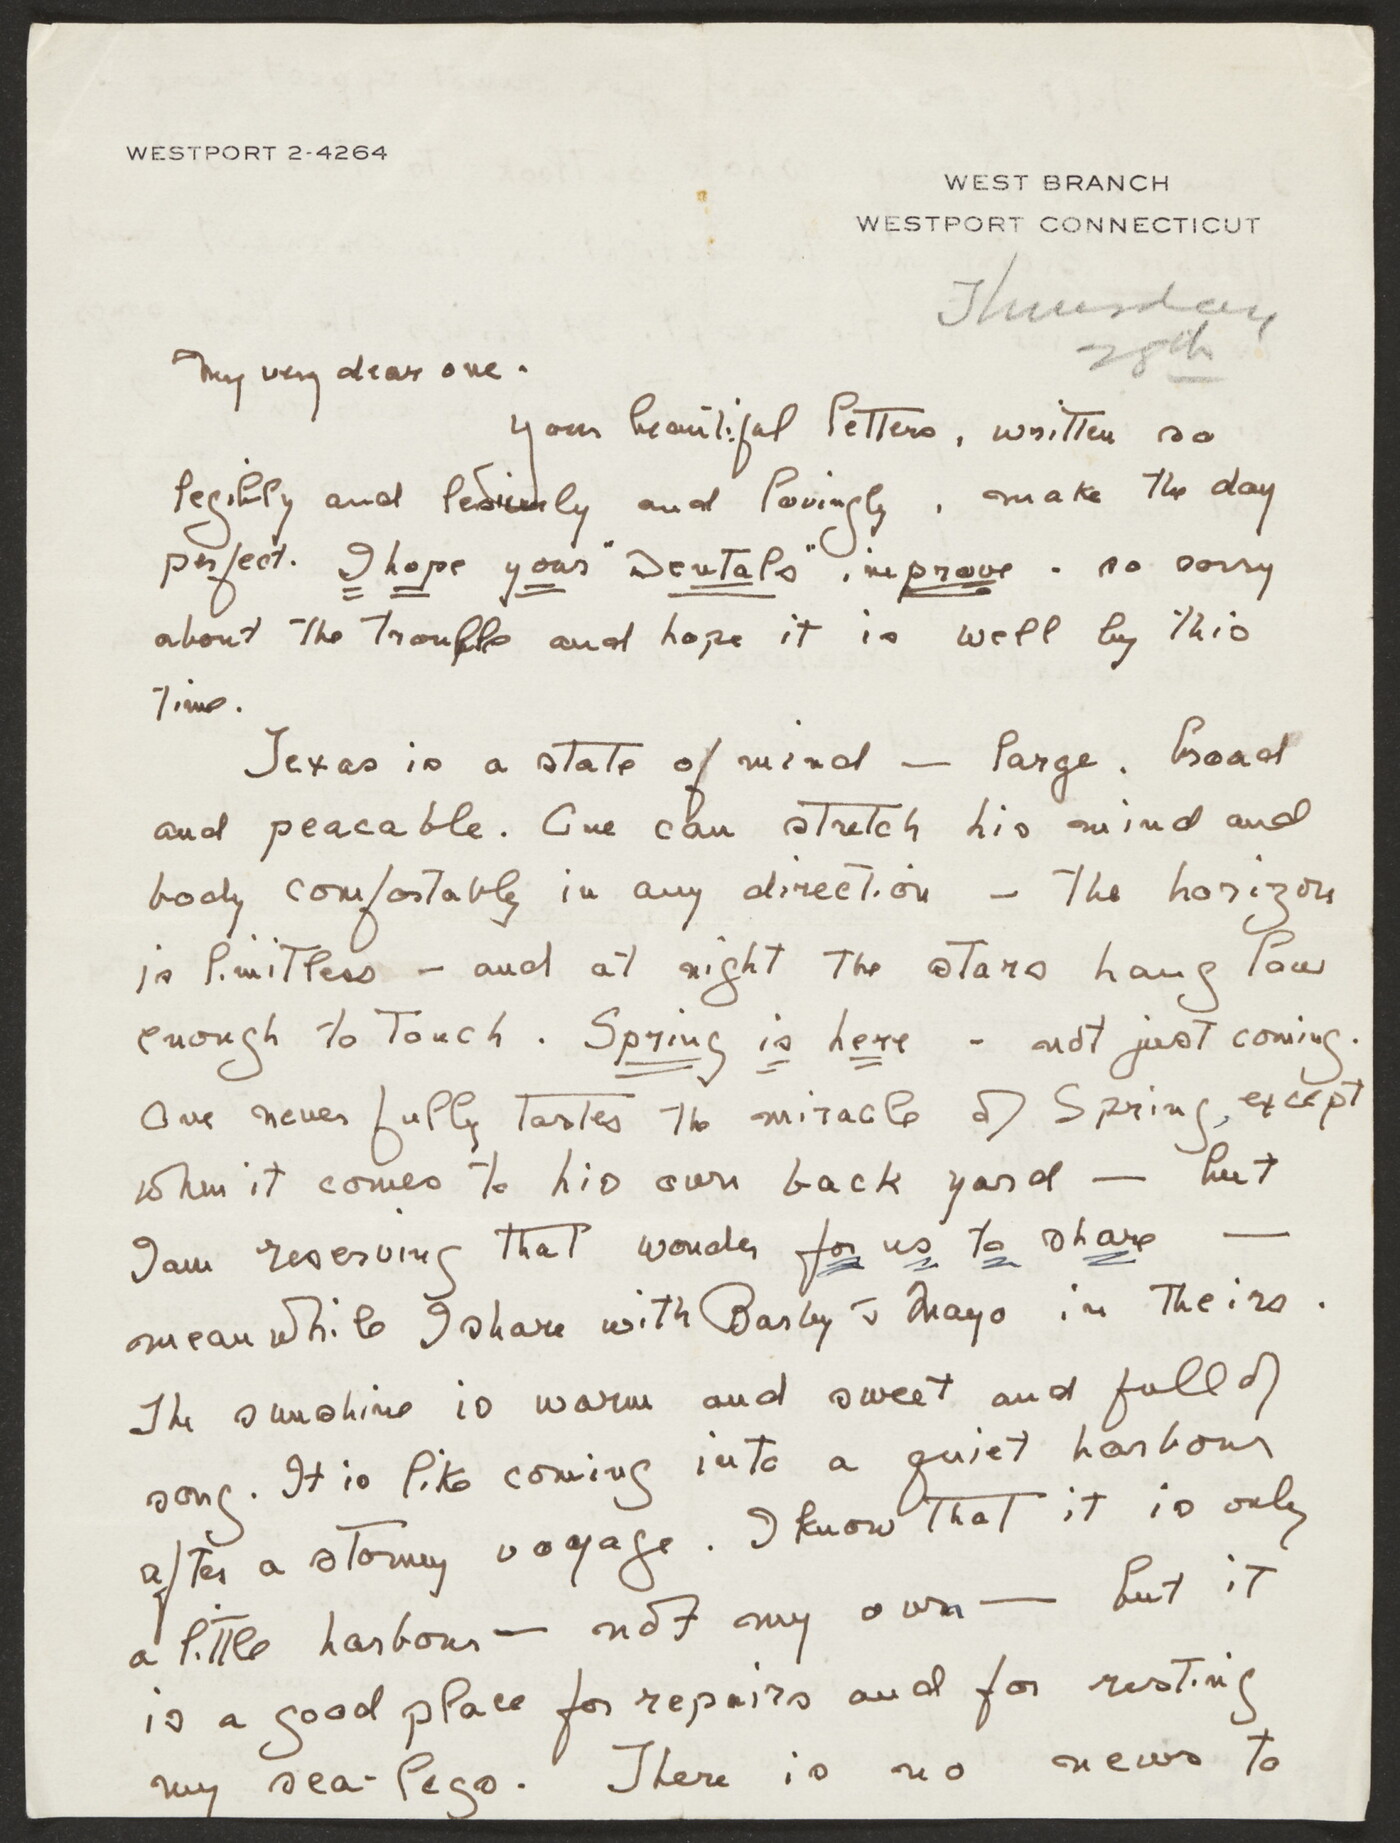 WESTPORT 2-4264
WEST BRANCH
WESTPORT CONNECTICUT
Thursday
28th
My very dear one.
Your beautiful letters, written so
legibly and leisurely and lovingly, make the day
perfect. I hope your "Dentals" improve - so sorry
about the trouble and hope it is well by this
time.
Texas is a state of mind — large, broad
and peacable. One can stretch his mind and
body comfortably in any direction - the horizon
is limitless - and at night the stars hang low
enough to touch. Spring is here - not just coming.
One never fully tastes the miracle of Spring, except
when it comes to his own back yard — but
I am reserving that wonder for us to share —
meanwhile I share with Barby & Mayo in theirs.
The sunshine is warm and sweet and full of
song. It is like coming into a quiet harbour
after a stormy voyage. I know that it is only
a little harbour — not my own — but it
is a good place for repairs and for resting
my sea-legs. There is no news to